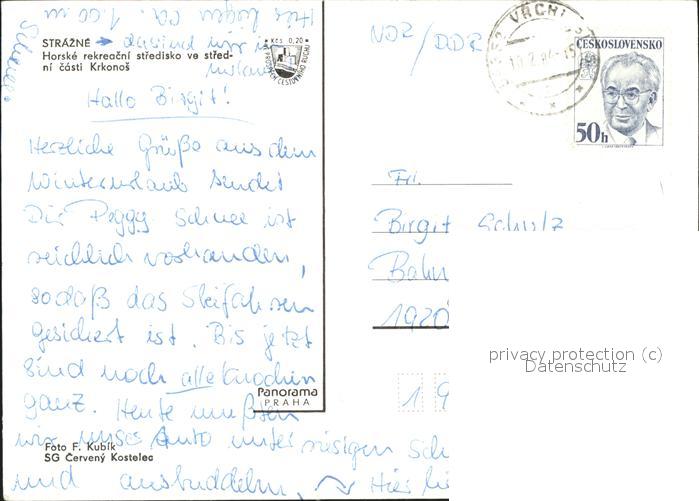 Hier liegen ca. 1.00 m
Schnee.
STRÁŽNÉ → da sind wir im
Horské rekreační středisko ve střed-
ní části Krkonoš
Urlaub
Kčs 0,20
NDR/DDR
VRCHL
ČESKOSLOVENSKO
50h
Hallo Birgit!
Herzliche Grüße aus dem
Winterurlaub sendet
Dir Peggy. Schnee ist
reichlich vorhanden,
sodaß das Skifahren
gesichert ist. Bis jetzt
sind noch alle Knochen
ganz. Heute mußten
wir unser Auto unter riesigen Sch
und ausbuddeln. → Hier li
Panorama
PRAHA
Foto F. Kubík
SG Červený Kostelec
Frl.
Birgit Schulz
Bahn
1920
1 9
privacy protection (c)
Datenschutz